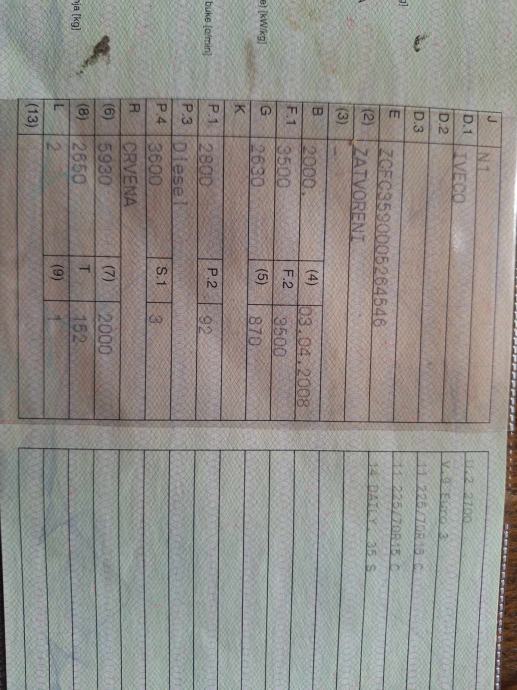 J N1
D.1 IVECO
D.2
D.3
E ZCFC3590005264546
(2) ZATVORENI
(3) -
B 2000. (4) 03.04.2008
F.1 3500 F.2 3500
G 2630 (5) 870
K
P.1 2800 P.2 92
P.3 Diesel
P.4 3600 S.1 3
R CRVENA
(6) 5930 (7) 2000
(8) 2650 T 152
L 2 (9) 1
(13)
V.9 Euro 3
11 225/70R15 C
11 225/70R15 C
14 DAILY 35 S
[kW/kg]
buke [o/min]
nja [kg]